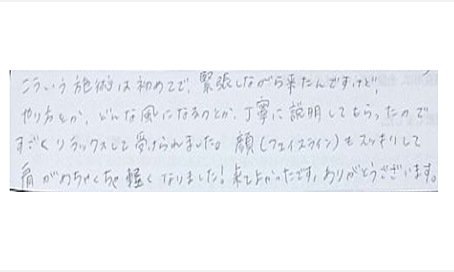 こういう施術は初めてで、緊張しながら来たんですけど、
やり方とか、どんな風になるのとか、丁寧に説明してもらったので
すごくリラックスして受けられました。顔(フェイスライン)もスッキリして
肩がめちゃくちゃ軽くなりました!来てよかったです。ありがとうございます。